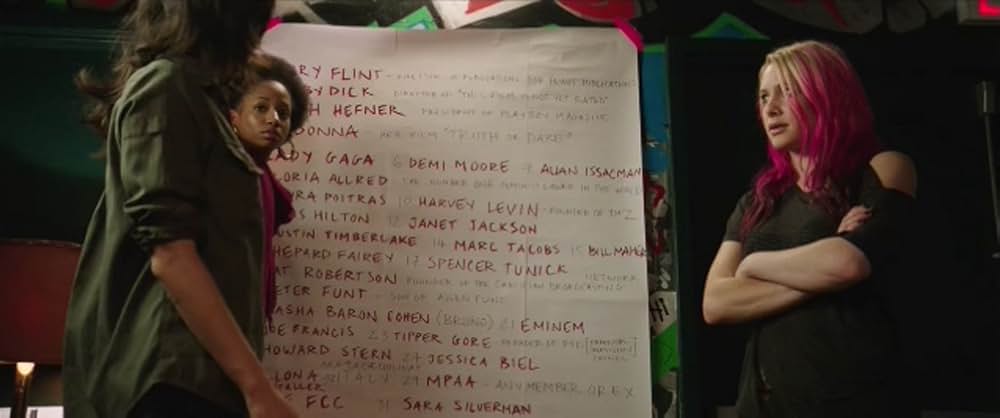 RY FLINT - DIRECTOR OF PUBLICATIONS FOR HUNNY PUBLICATIONS
BY DICK DIRECTOR OF "THIS FILM IS NOT YET RATED"
H HEFNER PRESIDENT OF PLAYBOY MAGAZINE
DONNA - HER FILM "TRUTH OR DARE"
LADY GAGA 6 DEMI MOORE 7 ALLAN ISSACMAN
LORIA ALLRED - THE NUMBER ONE FEMINIST LAWYER IN THE WORLD
URA POITRAS 10 HARVEY LEVIN - FOUNDER OF TMZ
IS HILTON 12 JANET JACKSON
USTIN TIMBERLAKE 14 MARC TACOBS 15 BILL MAHER
HEPARD FAIREY 17 SPENCER TUNICK
AT ROBERTSON FOUNDER OF THE CHRISTIAN BROADCASTING NETWORK
ETER FUNT - SON OF ALLEN FUNT
ASHA BARON COHEN (BRUNO) 21 EMINEM
OE FRANCIS 23 TIPPER GORE
HOWARD STERN 27 JESSICA BIEL
LONA ITALY 29 MPAA - ANY MEMBER OR EX
TALLER
FCC 31 SARA SILVERMAN